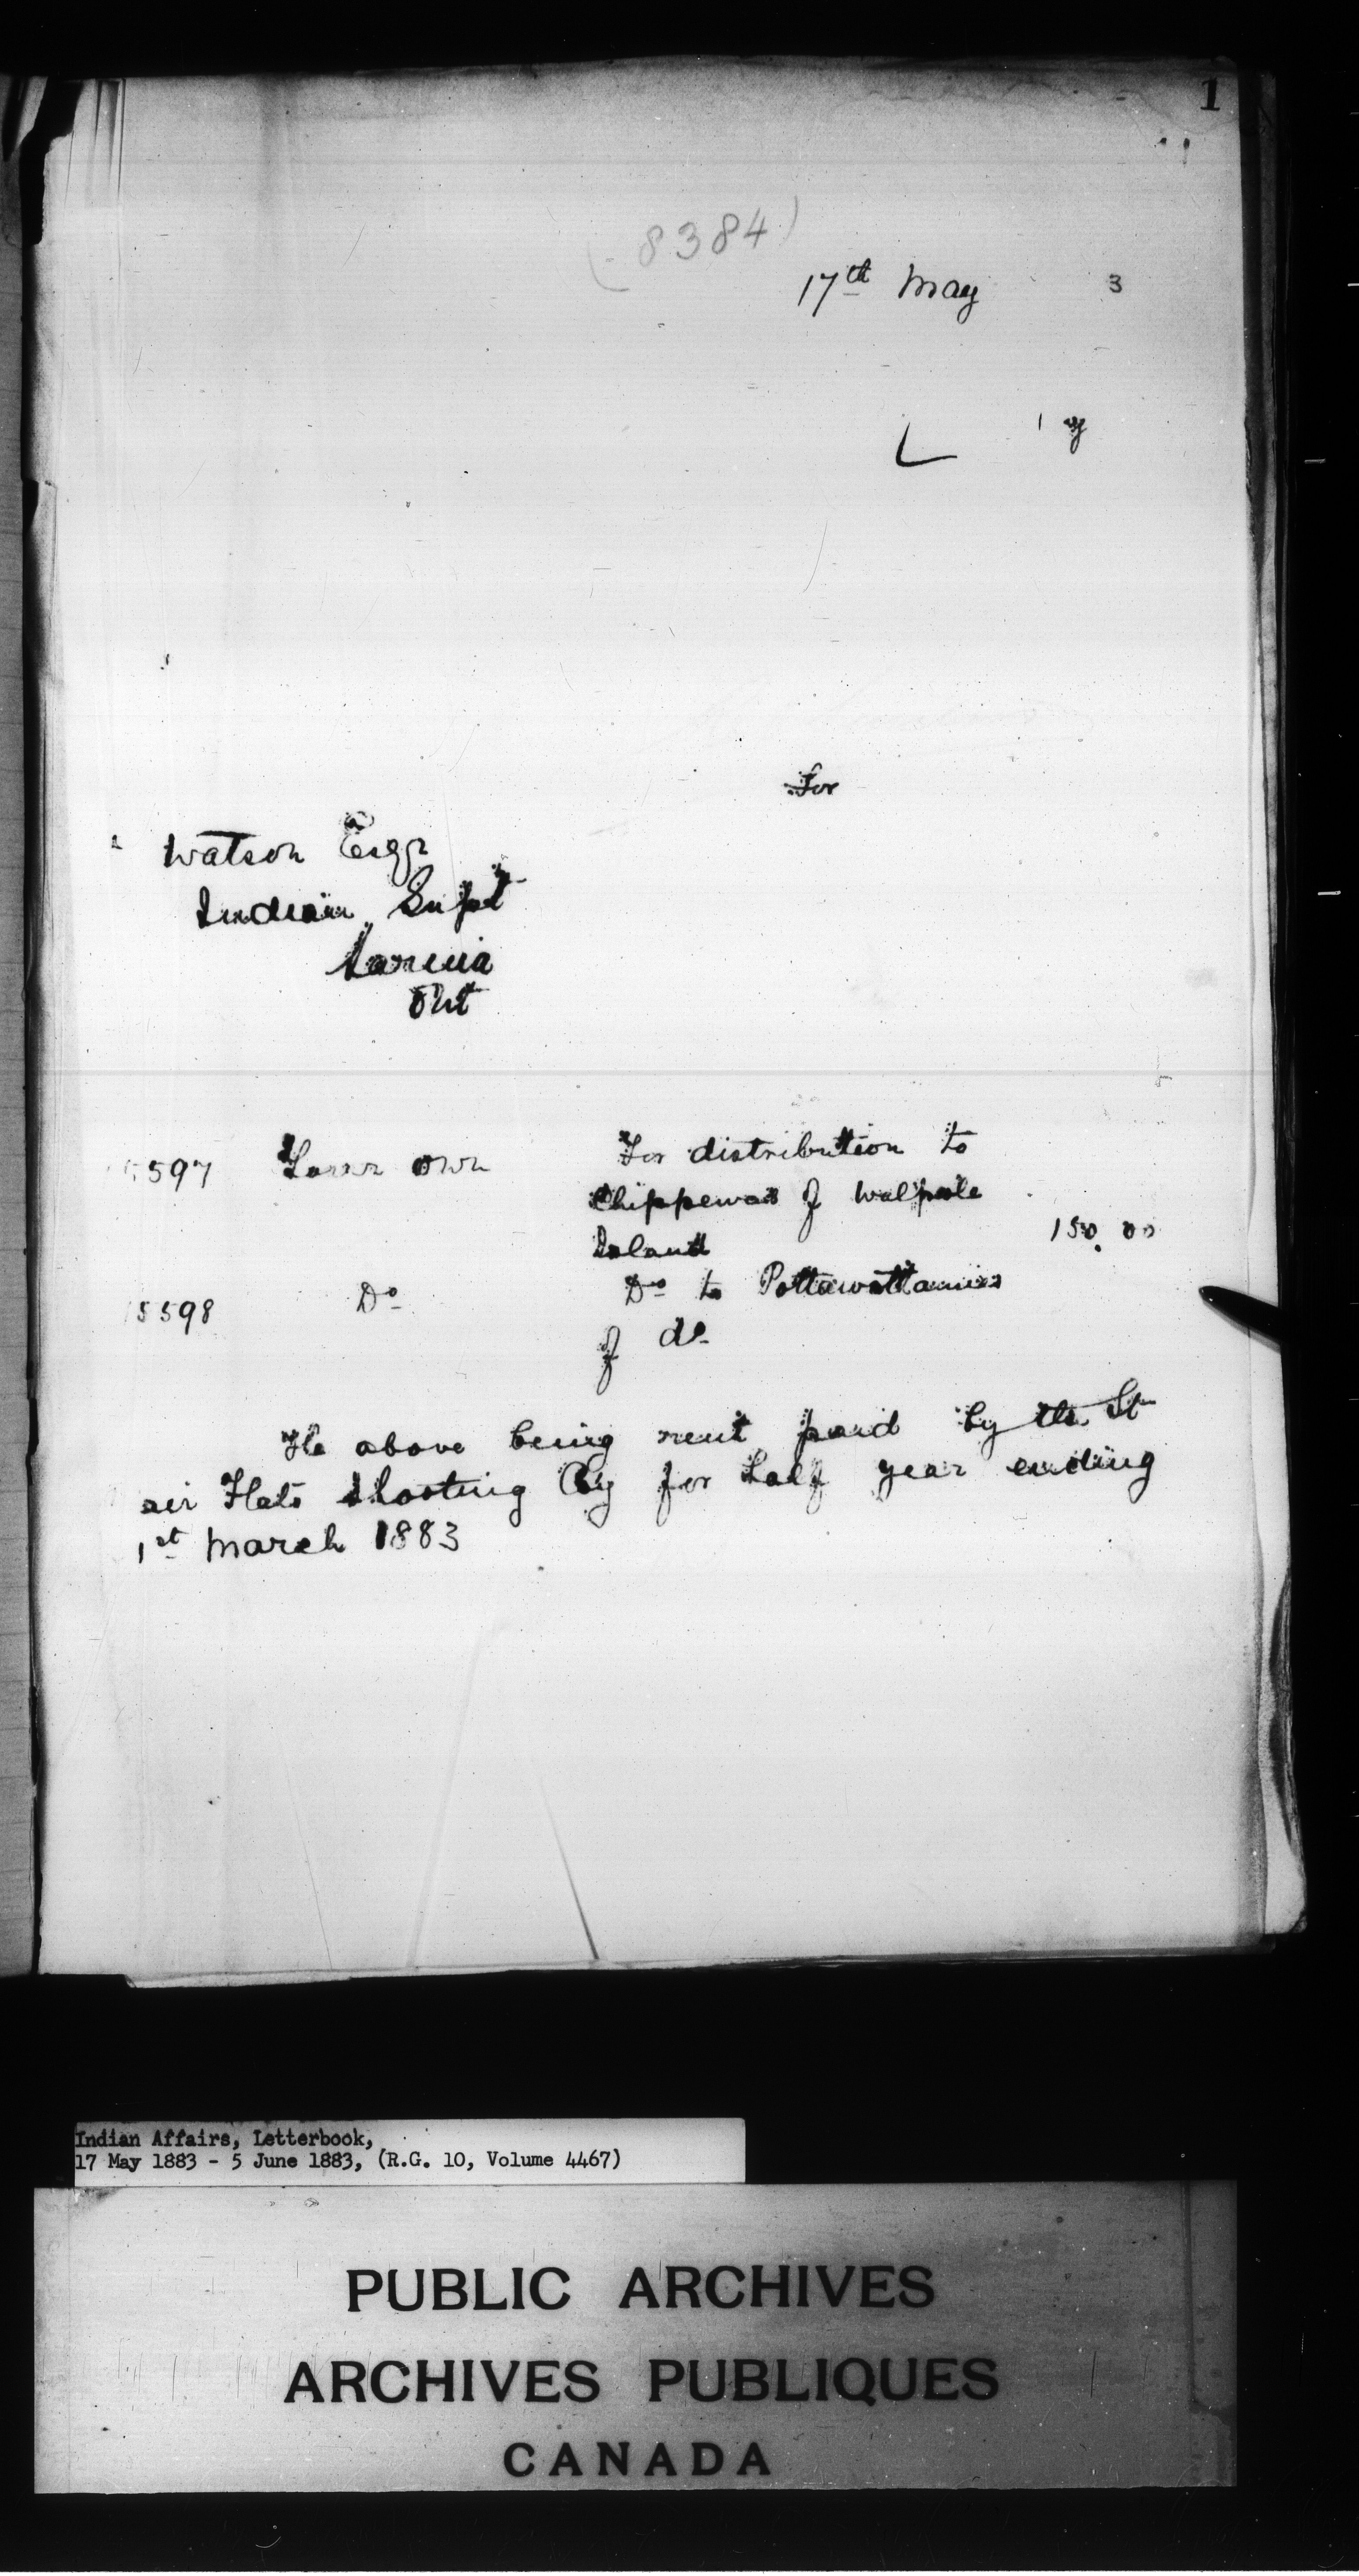 1
(8384)
17th May 3
L
For
Watson Esqr
Indian Supt
Sarnia
Ont
5597 Your own For distribution to
Chippewas of Walpole
Island 150.00
5598 Do Do to Pottawattamies
of do
The above being rent paid by the St
air Flats Shooting Coy for half year ending
1st March 1883
Indian Affairs, Letterbook,
17 May 1883 - 5 June 1883, (R.G. 10, Volume 4467)
PUBLIC ARCHIVES
ARCHIVES PUBLIQUES
CANADA